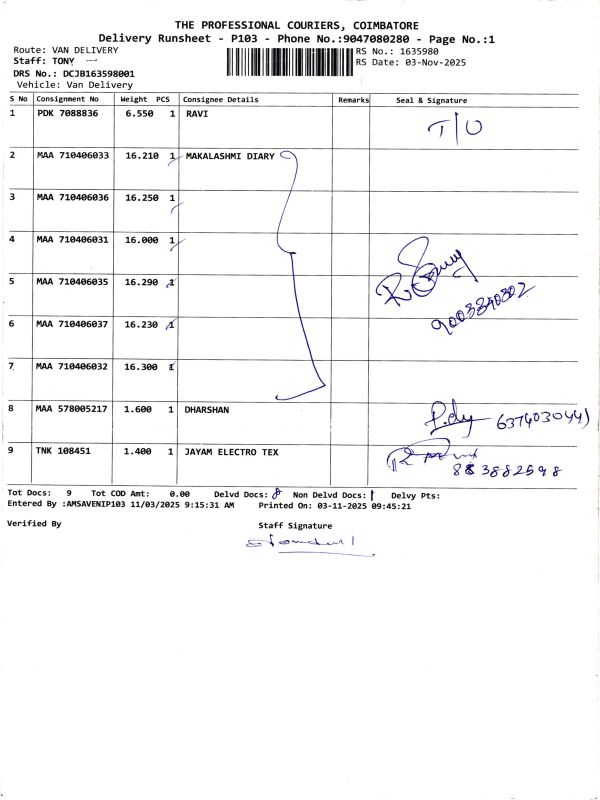 THE PROFESSIONAL COURIERS, COIMBATORE
Delivery Runsheet - P103 - Phone No.:9047080280 - Page No.:1
Route: VAN DELIVERY RS No.: 1635980
Staff: TONY RS Date: 03-Nov-2025
DRS No.: DCJB163598001
Vehicle: Van Delivery
S No Consignment No Weight PCS Consignee Details Remarks Seal & Signature
1 PDK 7088836 6.550 1 RAVI T/O
2 MAA 710406033 16.210 1 MAKALASHMI DIARY
3 MAA 710406036 16.250 1
4 MAA 710406031 16.000 1
5 MAA 710406035 16.290 1
9003840302
6 MAA 710406037 16.230 1
7 MAA 710406032 16.300 1
8 MAA 578005217 1.600 1 DHARSHAN
9 TNK 108451 1.400 1 JAYAM ELECTRO TEX
Tot Docs: 9 Tot COD Amt: 0.00 Delvd Docs: 8 Non Delvd Docs: 1 Delvy Pts:
Entered By :AMSAVENIP103 11/03/2025 9:15:31 AM Printed On: 03-11-2025 09:45:21
Verified By Staff Signature